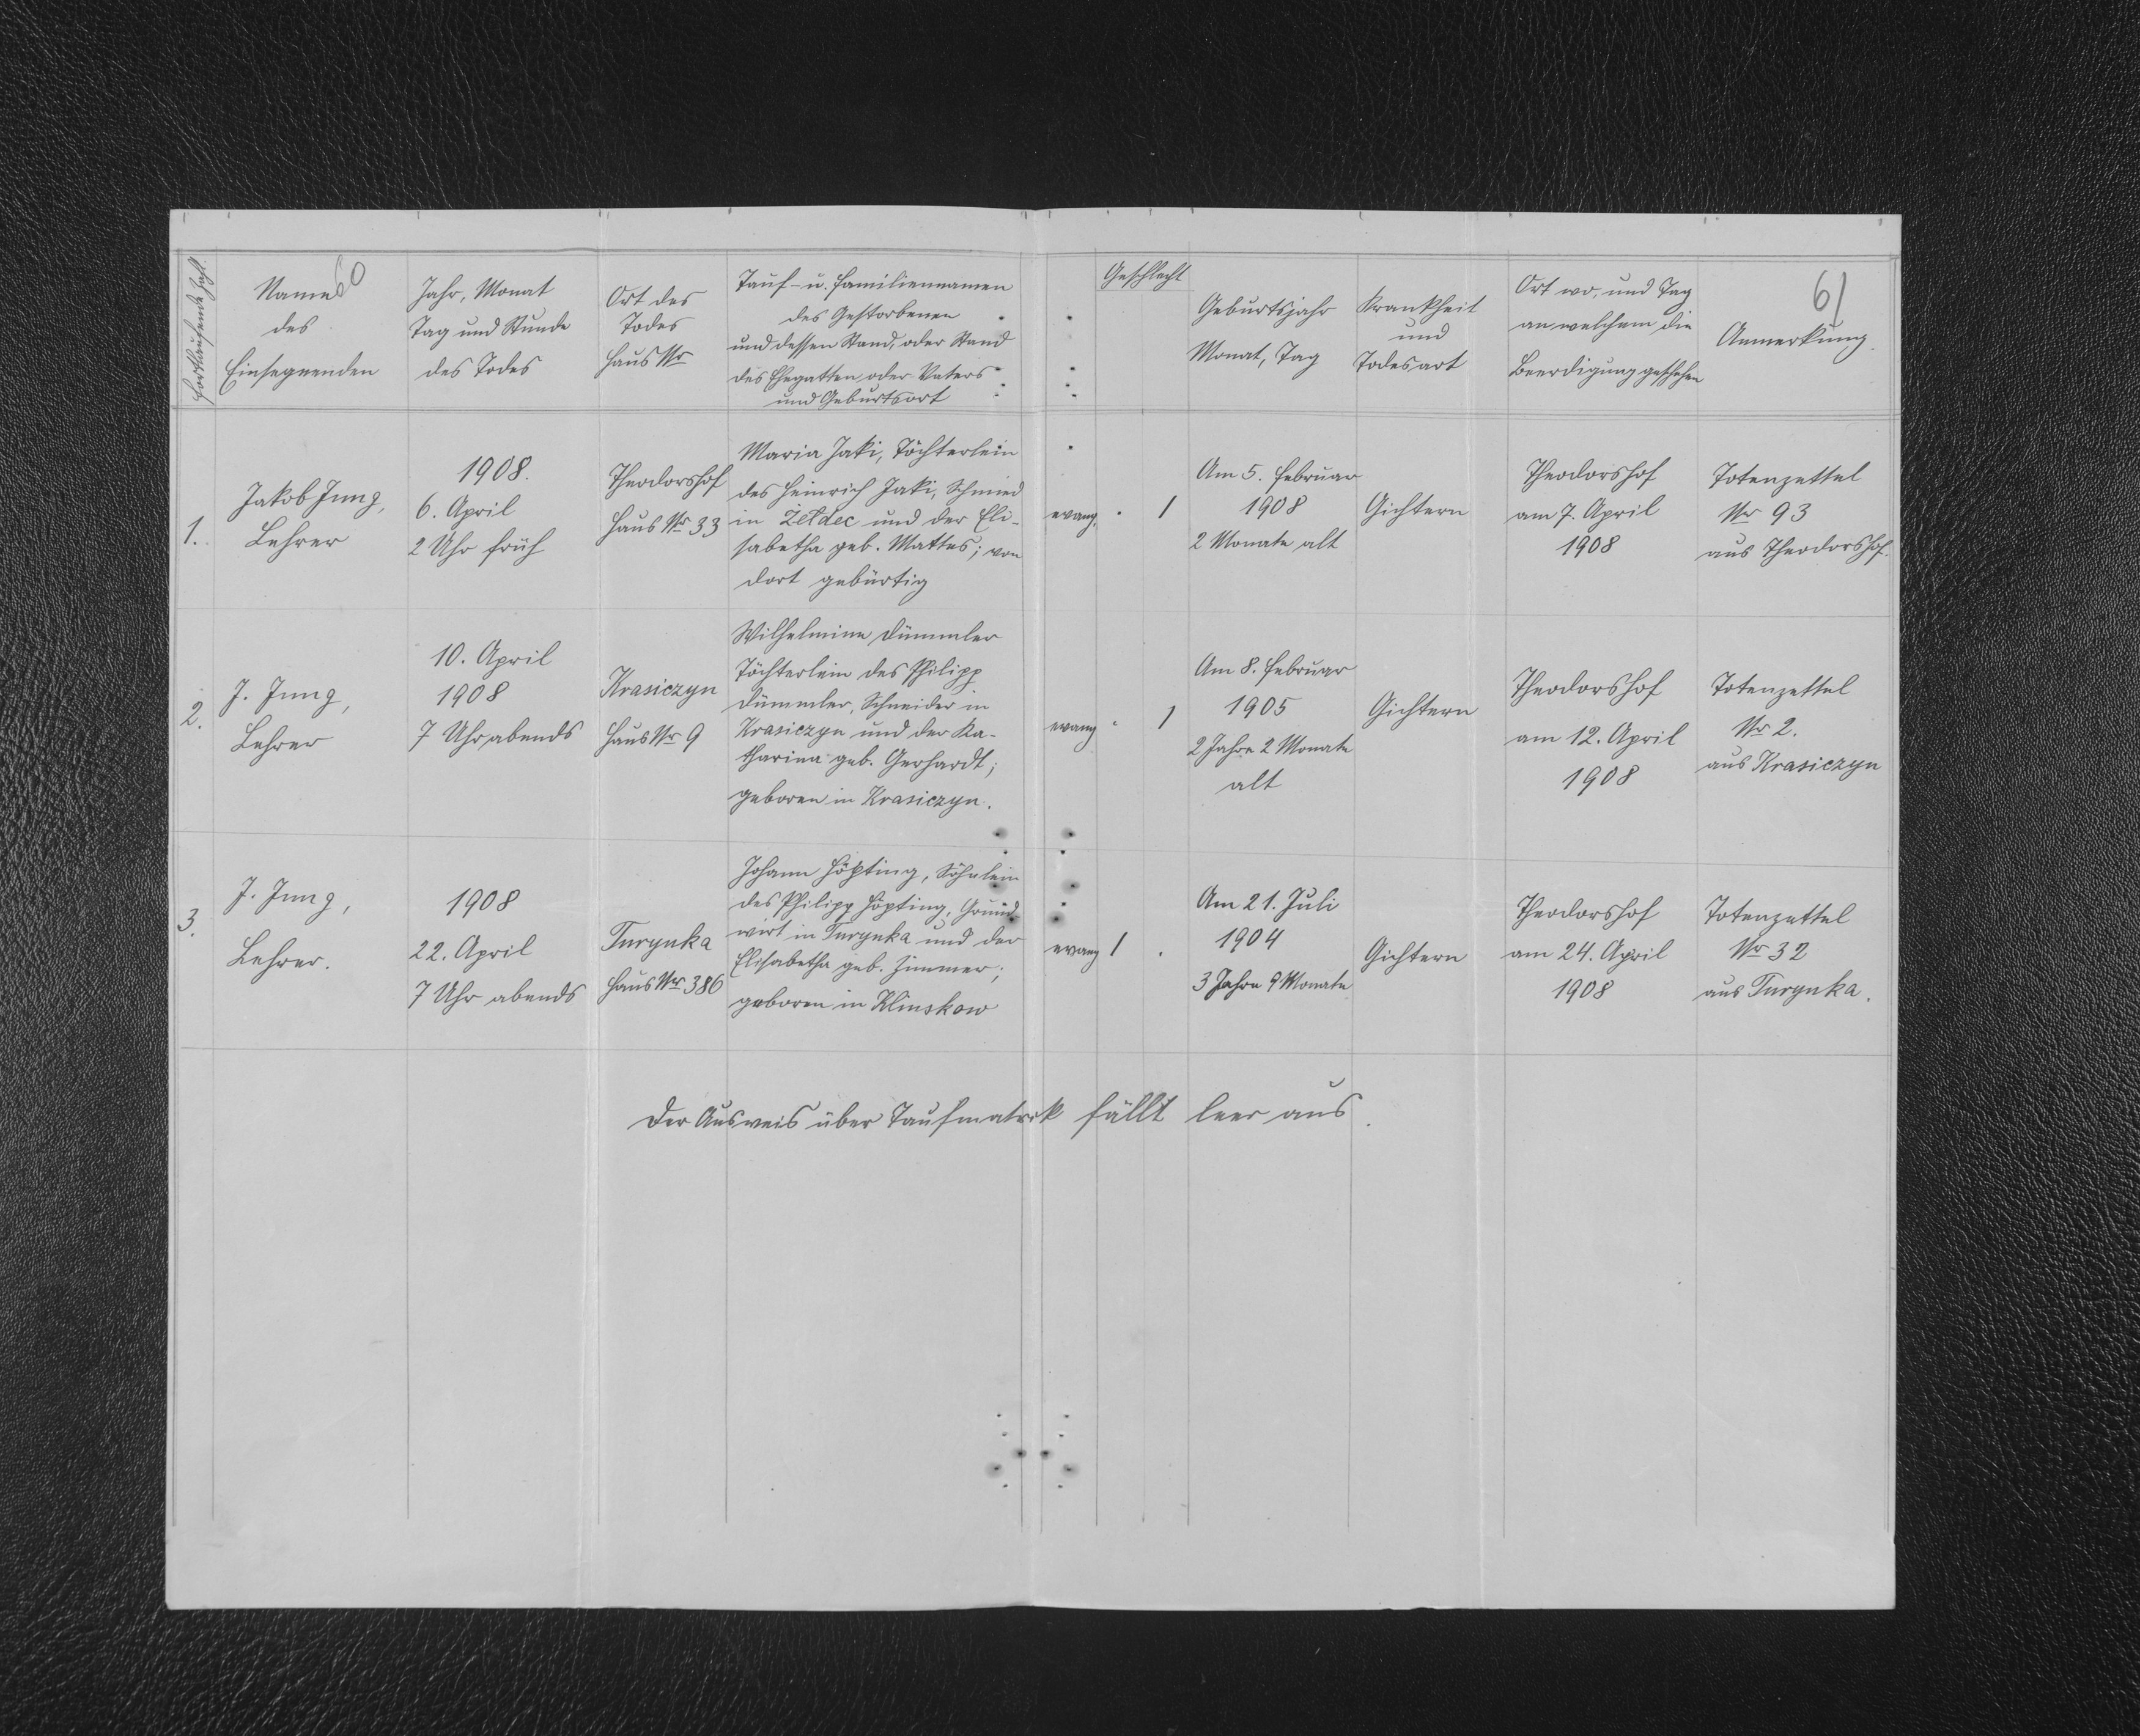 60
61
Fortlaufende Zahl.
Name
des
Einsegnenden
Jahr, Monat
Tag und Stunde
des Todes
Ort des
Todes
Haus Nr
Tauf- u. Familiennamen
des Gestorbenen
und dessen Stand, oder Stand
des Ehegatten oder Vaters
und Geburtsort
Geschlecht
Geburtsjahr
Monat, Tag
Krankheit
und
Todesart
Ort wo, und Tag
an welchem die
Beerdigung geschehen
Anmerkung.
1.
Jakob Jung,
Lehrer
1908.
6. April
2 Uhr früh
Theodorshof
Haus Nr 33
Maria Jaki, Töchterlein
des Heinrich Jaki, Schmied
in Żełdec und der Eli-
sabetha geb. Mattes; von
dort gebürtig
evang.
1
Am 5. Februar
1908
2 Monate alt
Gichtern
Theodorshof
am 7. April
1908
Totenzettel
Nr 93
aus Theodorshof.
2.
J. Jung,
Lehrer
10. April
1908
7 Uhr abends
Krasiczyn
Haus Nr 9
Wilhelmine Dümmler
Töchterlein des Philipp
Dümmler, Schneider in
Krasiczyn und der Ka-
tharina geb. Gerhardt;
geboren in Krasiczyn.
evang
1
Am 8. Februar
1905
2 Jahre 2 Monate
alt
Gichtern
Theodorshof
am 12. April
1908
Totenzettel
Nr 2.
aus Krasiczyn
3.
J. Jung,
Lehrer.
1908
22. April
7 Uhr abends
Turynka
Haus Nr 386
Johann Höpting, Söhnlein
des Philipp Höpting, Grund-
wirt in Turynka und der
Elisabetha geb. Zimmer;
geboren in Klinskow
evang
1
Am 21. Juli
1904
3 Jahre 9 Monate
Gichtern
Theodorshof
am 24. April
1908
Totenzettel
Nr 32
aus Turynka.
Der Ausweis über Taufmatrik fällt leer aus.